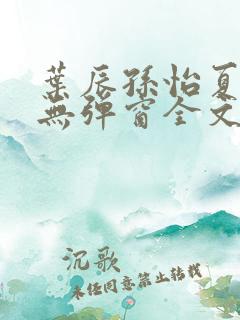 葉辰孫怡夏
無彈窗全文
沉歌
未經同意禁止轉載